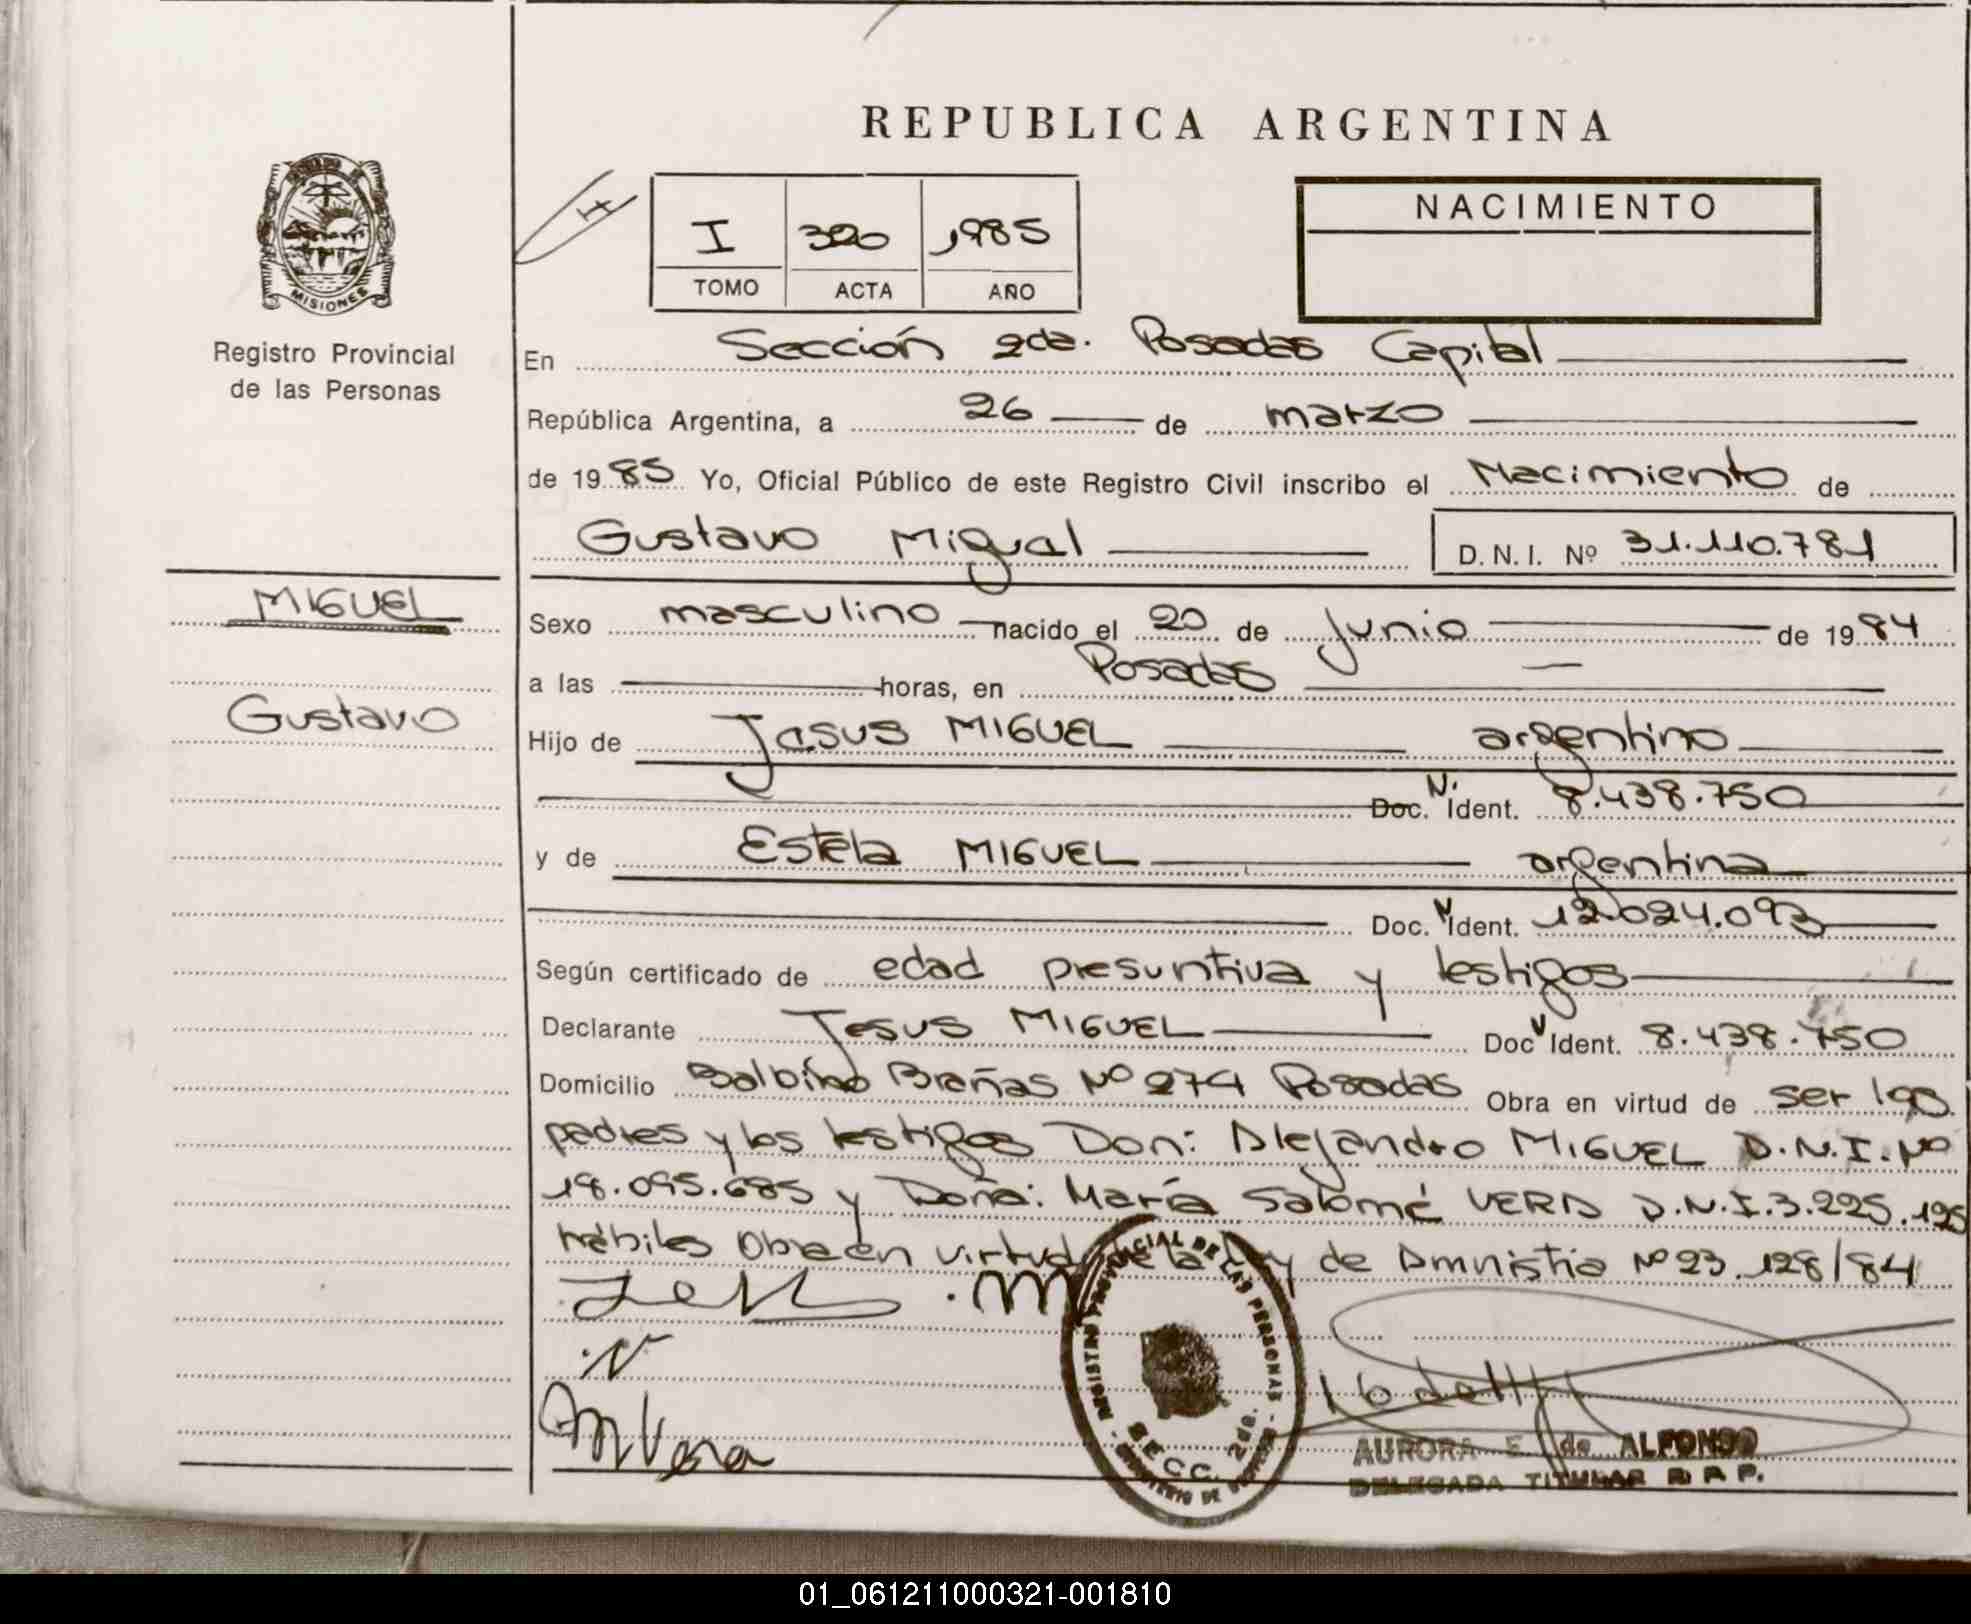 REPUBLICA ARGENTINA
MISIONES
Registro Provincial
de las Personas
I 320 1985
TOMO ACTA AÑO
NACIMIENTO
En Sección 2da. Posadas Capital
República Argentina, a 26 de marzo
de 1985 Yo, Oficial Público de este Registro Civil inscribo el Nacimiento de
Gustavo Miguel D.N.I. Nº 31.110.781
MIGUEL
Gustavo
Sexo masculino nacido el 20 de Junio de 1984
a las horas, en Posadas
Hijo de Jesus MIGUEL argentino
Doc. N. Ident. 8.438.750
y de Estela MIGUEL argentina
Doc. Ident. 12.024.093
Según certificado de edad presuntiva y testigos
Declarante Jesus MIGUEL Doc Ident. 8.438.750
Domicilio Balbino Brañas Nº 274 Posadas Obra en virtud de ser los
padres y los testigos Don: Alejandro MIGUEL D.N.I. Nº
18.095.685 y Doña: María Salomé VERA D.N.I. 3.225.195
hábiles Obra en virtud de la Ley de Amnistia Nº 23.128/84
REGISTRO PROVINCIAL DE LAS PERSONAS
SECC. 2da.
AURORA E. de ALFONSO
DELEGADA TITULAR R.P.P.
01_061211000321-001810